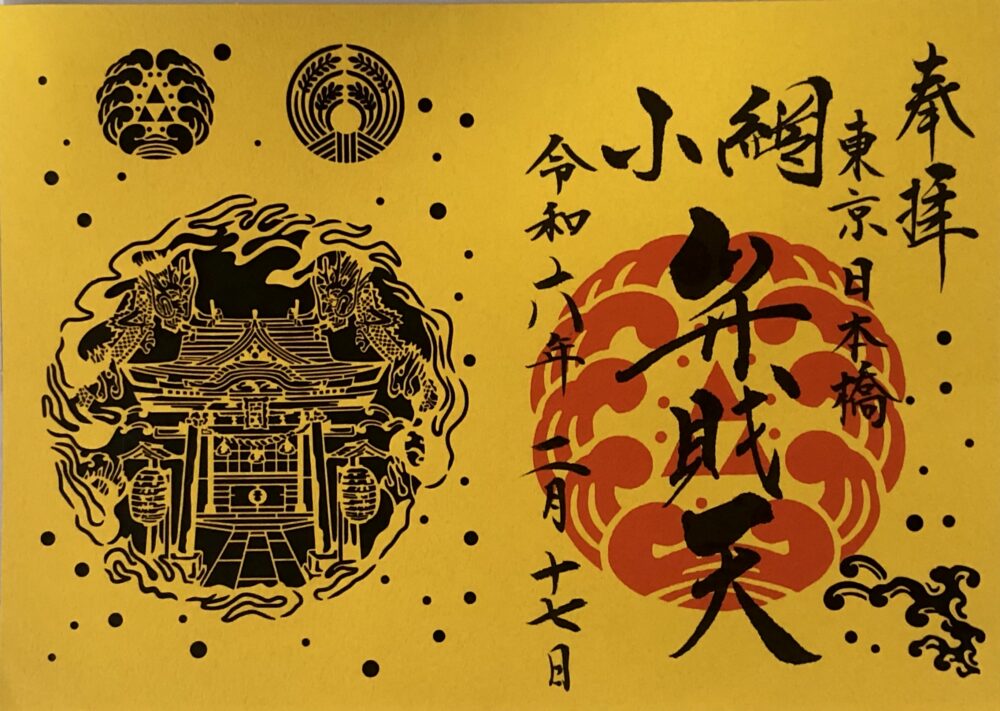 奉拝
東京日本橋
小網
弁財天
令和六年二月十七日